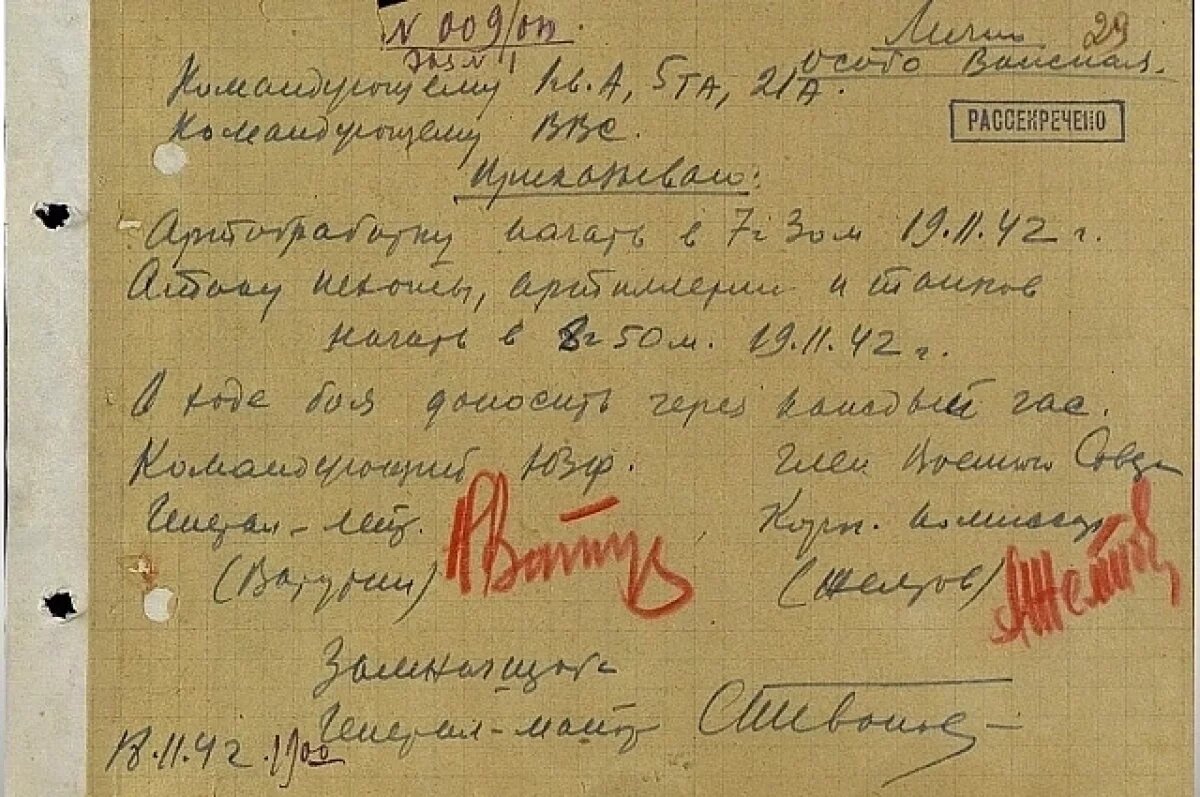 № 009/оп
Лично 29
экз № 1
Особо Важная.
Командующему 1 гв. А, 5ТА, 21А.
Командующему ВВС.
РАССЕКРЕЧЕНО
Приказываю:
Артобработку начать в 7ч 30м 19.11.42 г.
Атаку пехоты, артиллерии и танков
начать в 8ч 50м. 19.11.42 г.
В ходе боя доносить через каждый час.
Командующий ЮЗФ. Член Военного Совета
Генерал-лейт. Корп. комиссар
(Ватутин) (Желтов)
Замначштаба
Генерал-майор
18.11.42 1900